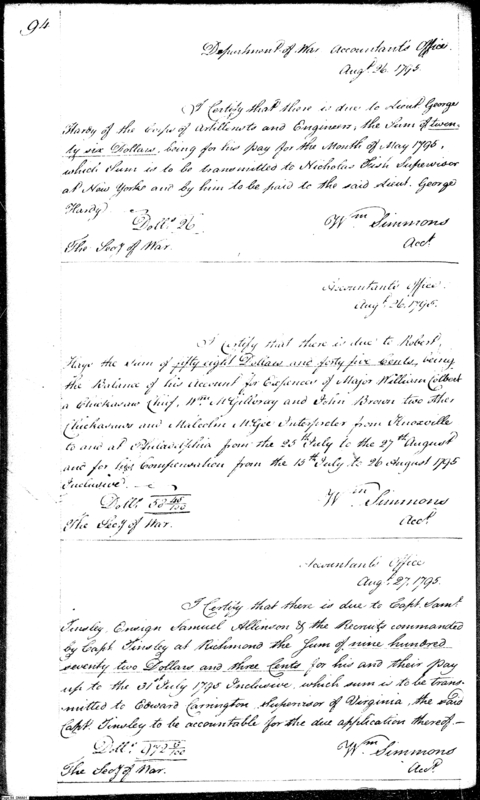 94
Department of War Accountant's Office.
Augt. 26. 1795.
I Certify that there is due to Lieut. George
Hardy of the Corps of Artillerists and Engineers, the Sum of twen-
ty six Dollars, being for his pay for the Month of May 1795,
which Sum is to be transmitted to Nicholas Fish Supervisor
at New York and by him to be paid to the said Lieut. George
Hardy
Dolls. 26
Wm Simmons
The Secy of War.
Acct.
Accountant's Office.
Augt. 26. 1795.
I Certify that there is due to Robert
Hays the Sum of fifty eight Dollars and forty five Cents, being
the Balance of his Account for Expences of Major William Colbert
a Chickasaw Chief, Wm McGilloray and John Brown two other
Chickasaws and Malcolm McGee Interpreter from Knoxville
to and at Philadelphia from the 25th July to the 27th August
and for his Compensation from the 15th July to 26 August 1795
Inclusive.
Dolls. 58 45/100
Wm Simmons
The Secy of War.
Acct.
Accountant's Office
Augt. 27. 1795.
I Certify that there is due to Capt. Saml.
Tinsley, Ensign Samuel Allinson & the Recruits commanded
by Capt. Tinsley at Richmond the Sum of nine hundred
seventy two Dollars and three Cents for his and their pay
up to the 31st July 1795 Inclusive, which sum is to be trans-
mitted to Edward Carrington Supervisor of Virginia, the said
Capt. Tinsley to be accountable for the due application thereof.—
Dolls. 972 3/100
Wm Simmons
The Secy of War.
Acct.